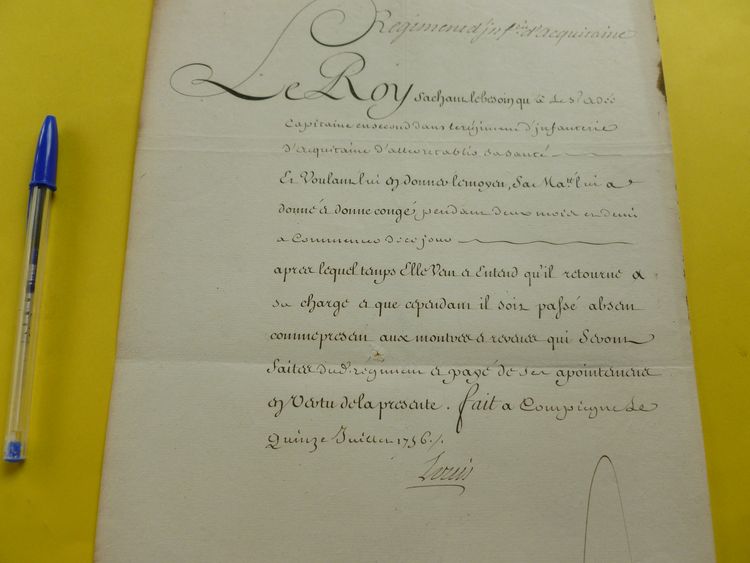 Regiment d'Inf.rie d'acquitaine
Le Roy sachant le besoin qu'a le Sr
Capitaine en second dans le régiment d'infanterie
d'acquitaine d'aller retablir sa santé
Et Voulant lui en donner le moyen, Sa Ma.té lui a
donné et donne congé pendant deux mois et demi
a Commencer de ce jour
après lequel temps Elle Veut et Entend qu'il retourne a
sa charge et que cependant il soit passé absent
comme present aux montres et reveues qui Seront
faites dud. régiment et payé de ses apointemens
en Vertu de la presente. fait a Compiegne Le
Quinze Juillet 1756./.
Louis